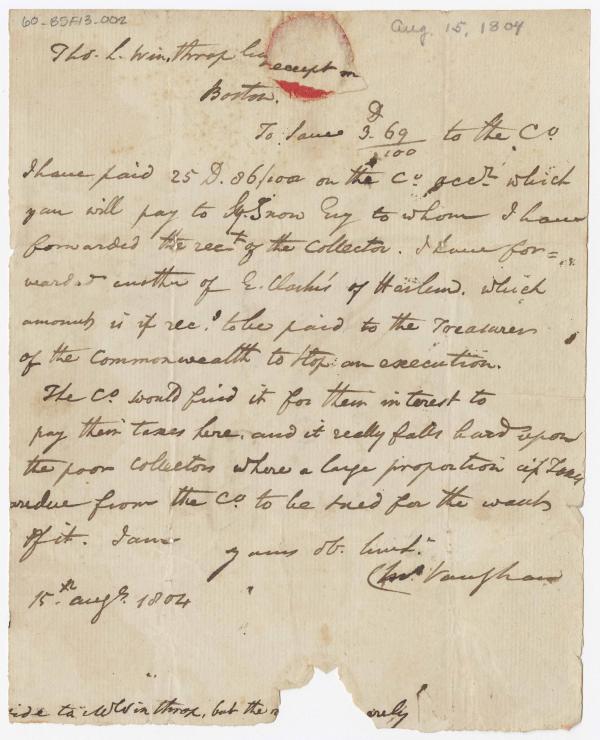 60-BSF13-002
Aug. 15, 1804
Tho. L. Winthrop Esq except on
Boston.
To save 3 D. 69/100 to the Co.
I have paid 25 D. 86/100 on the Co. acct. which
you will pay to Snow Esq to whom I have
forwarded the rect. of the Collector. I have for=
warded another of E. Clark's of Harlem. which
amount is if recd. to be paid to the Treasurer
of the Commonwealth to stop an execution.
The Co. would find it for their interest to
pay their taxes here. and it really falls hard upon
the poor Collectors where a large proportion of Taxes
are due from the Co. to be sued for the want
of it. I am
yours ob. Servt.
Chs. Vaughan
15th. augt. 1804
ide to Mr Winthrop, but the